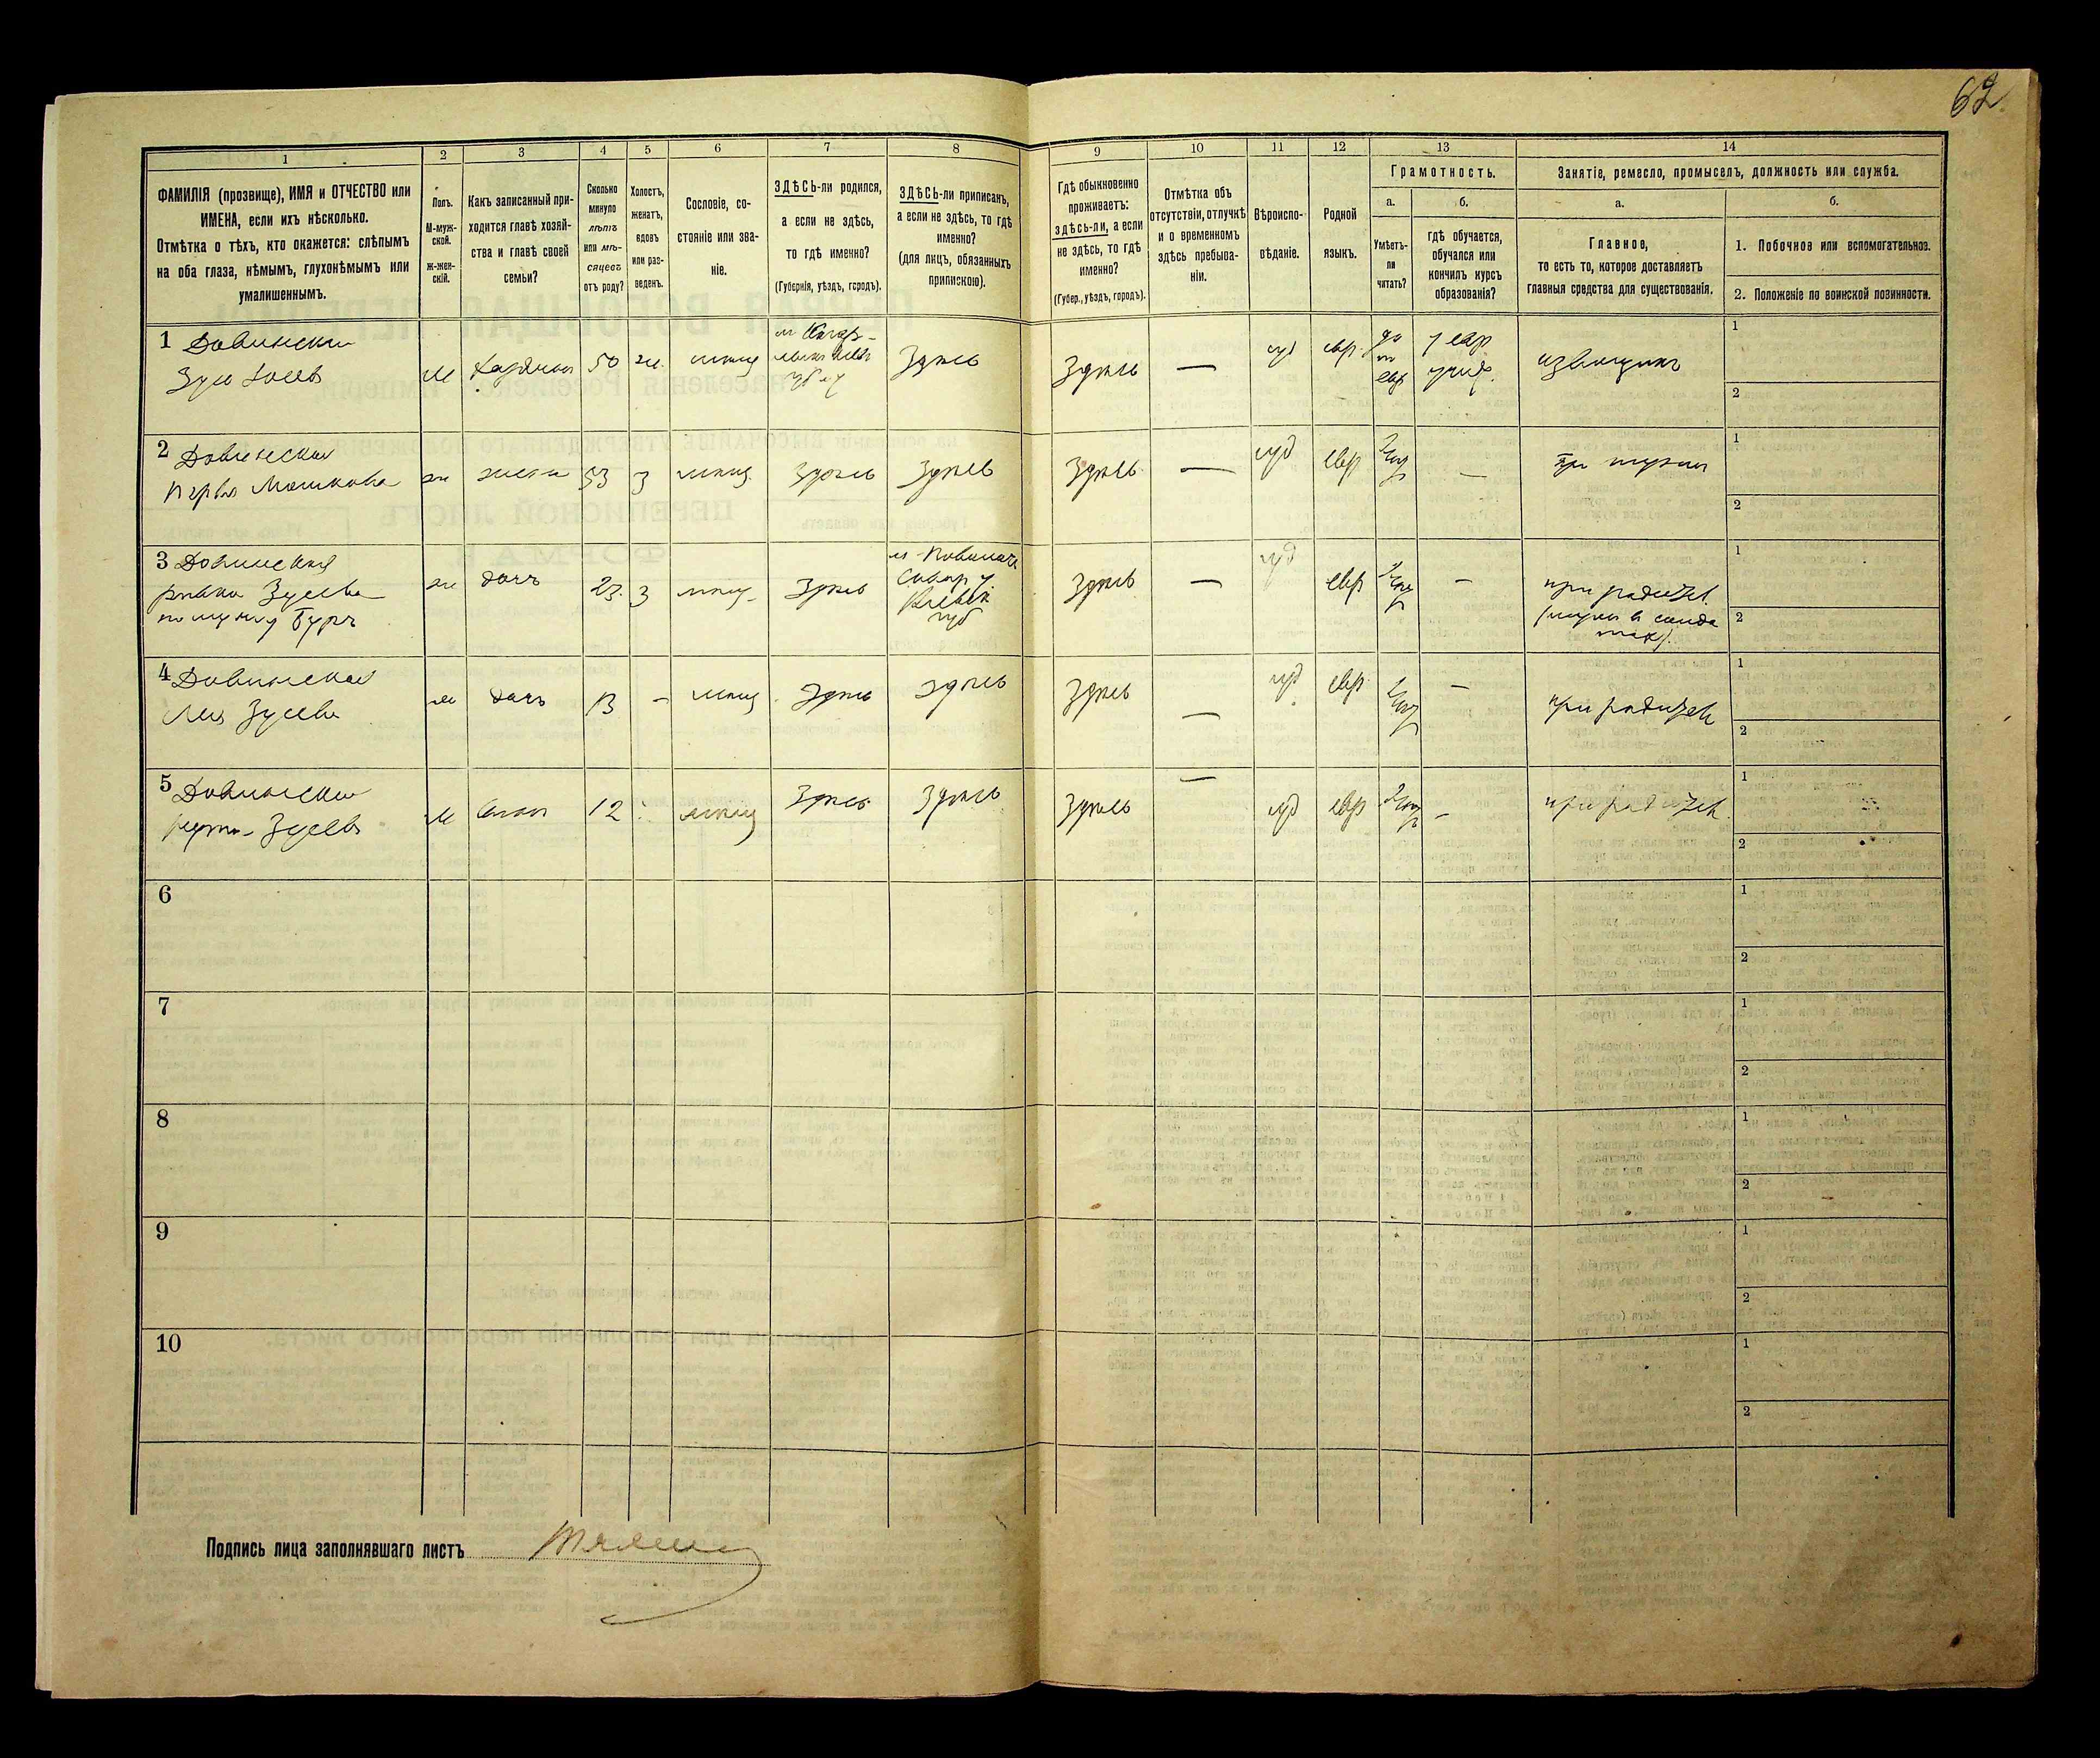 62
1
2
3
4
5
6
7
8
9
10
11
12
13
14
ФАМИЛІЯ (прозвище), ИМЯ и ОТЧЕСТВО или
ИМЕНА, если ихъ нѣсколько.
Отмѣтка о тѣхъ, кто окажется: слѣпымъ
на оба глаза, нѣмымъ, глухонѣмымъ или
умалишеннымъ.
Полъ.
М-муж-
ской.
Ж-жен-
скій.
Какъ записанный при-
ходится главѣ хозяй-
ства и главѣ своей
семьи?
Сколько
минуло
лѣтъ
или мѣ-
сяцевъ
отъ роду?
Холостъ,
женатъ,
вдовъ
или раз-
веденъ.
Сословіе, со-
стояніе или зва-
ніе.
ЗДѢСЬ-ли родился,
а если не здѣсь,
то гдѣ именно?
(Губернія, уѣздъ, городъ).
ЗДѢСЬ-ли приписанъ,
а если не здѣсь, то гдѣ
именно?
(для лицъ, обязанныхъ
припискою).
Гдѣ обыкновенно
проживаетъ:
здѣсь-ли, а если
не здѣсь, то гдѣ
именно?
(Губер., уѣздъ, городъ).
Отмѣтка объ
отсутствіи, отлучкѣ
и о временномъ
здѣсь пребыва-
ніи.
Вѣроиспо-
вѣданіе.
Родной
языкъ.
Грамотность.
а.
Умѣетъ-
ли
читать?
б.
гдѣ обучается,
обучался или
кончилъ курсъ
образованія?
Занятіе, ремесло, промыселъ, должность или служба.
а.
Главное,
то есть то, которое доставляетъ
главныя средства для существованія.
б.
1. Побочное или вспомогательное.
2. Положеніе по воинской повинности.
1 Довинскій
Зусь
м
хозяинъ
50
ж.
мѣщ
Здѣсь
Здѣсь
—
іуд
евр.
да
по
евр
у евр
учит.
извощикъ
1
2
2 Довинская
Перля Мошкова
ж
жена
53
з
мѣщ.
Здѣсь
Здѣсь
Здѣсь
—
іуд
евр
—
при мужѣ
1
2
3 Довинская
Ривка Зусева
по мужу
ж
дочь
23.
з
мѣщ.
Здѣсь
Сквир у.
Кіевск
губ
Здѣсь
—
іуд
евр
—
при родител.
(мужъ в солда
тах).
1
2
4 Довинская
Лея Зусева
ж
дочь
13
-
мѣщ
Здѣсь
Здѣсь
Здѣсь
—
іуд
евр.
—
при родител
1
2
5 Довинскій
Зусевъ
м
сынъ
12
мѣщ
Здѣсь
Здѣсь
Здѣсь
—
іуд
евр
—
при родител.
1
2
6
1
2
7
1
2
8
1
2
9
1
2
10
1
2
Подпись лица заполнявшаго листъ